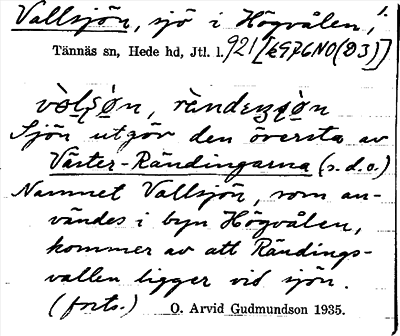 Vallsjön, sjö i Högvålen, 1.
Tännäs sn, Hede hd, Jtl. l. 921 [k976NO(D3)]
vòlṣø̣n, rändeŋsjø̣n
Sjön utgör den översta av
Väster-Rändingarna (s. d. o.)
Namnet Vallsjön, som an-
vändes i byn Högvålen,
kommer av att Rändings-
vallen ligger vid sjön.
(forts.) O. Arvid Gudmundson 1935.